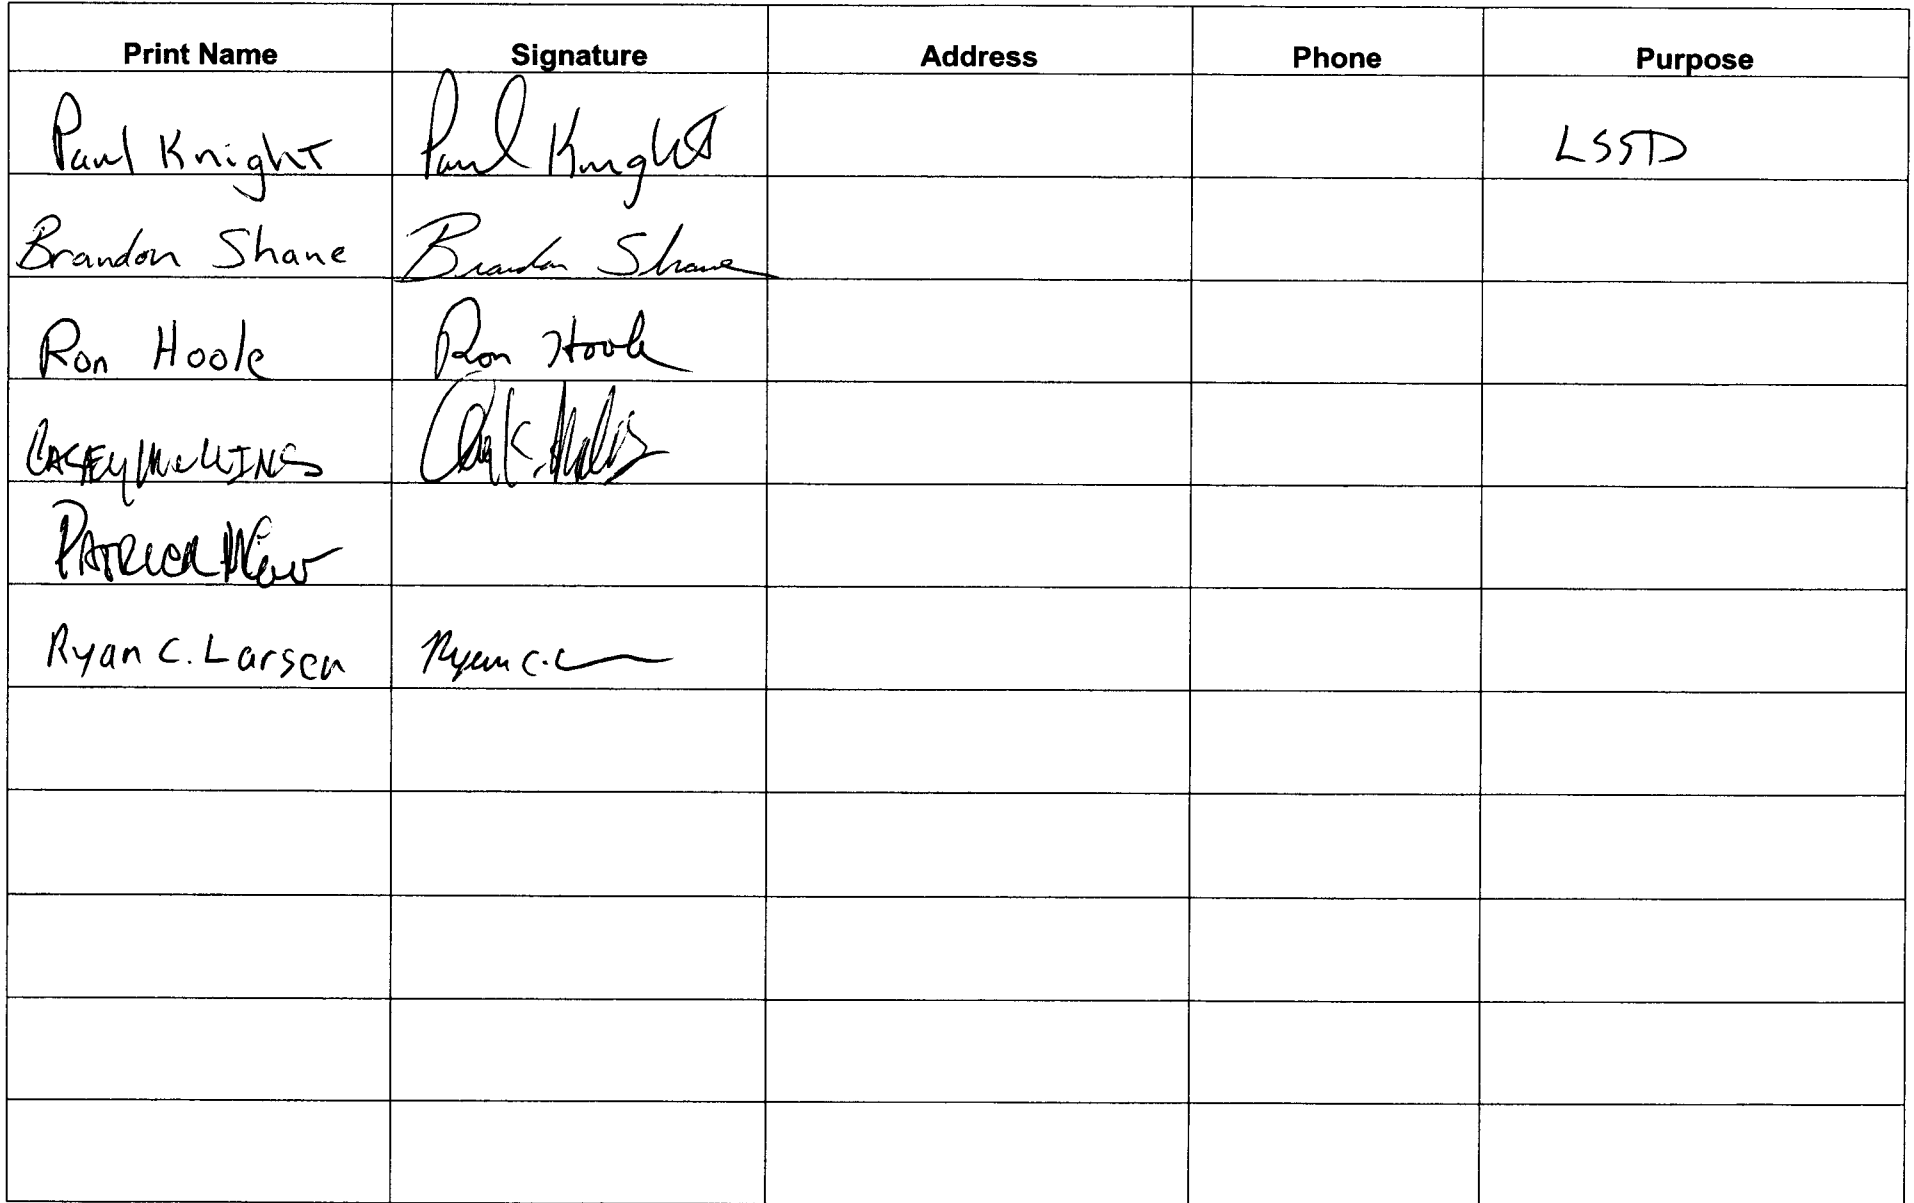 Print Name Signature Address Phone Purpose
Paul Knight Paul Knight LSSD
Brandon Shane Brandon Shane
Ron Hoole Ron Hoole
CASEY MULLINS
PATRICK
Ryan C. Larsen Ryan C.